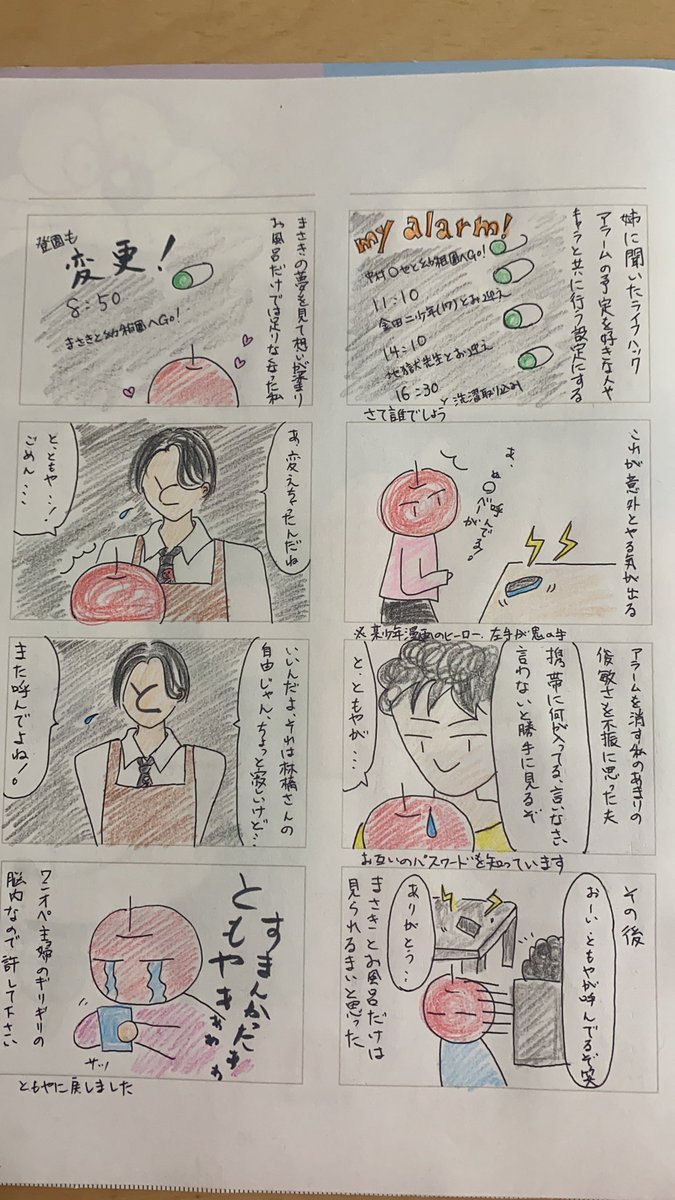 姉に聞いたライフハック
アラームの予定を好きな人や
キャラと共に行う設定にする
my alarm!
幼稚園へGo!
11:10
金田一少年(17)とお迎え
14:10
地獄先生とお迎え
16:30
と洗濯取り込み
さて誰でしょう
これが意外とやる気が出る
あ、
ぬ〇べ〇が
呼んでる!
※某少年漫画のヒーロー、左手が鬼の手
アラームを消す私のあまりの
俊敏さを不振に思った夫
携帯に何が入ってる、言いなさい
言わないと勝手に見るぞ
と、ともやが…
お互いのパスワードを知っています
その後
おーい、ともやが呼んでるぞ笑
ありがとう…
まさきとお風呂だけは
見られるまいと思った
まさきの夢を見て想いが募り
お風呂だけでは足りなくなった私
登園も
変更!
8:50
まさきと幼稚園へGo!
あ、変えちゃったんだね
と、ともや…!
ごめん…
いいんだよ、それは林檎さんの
自由じゃん、ちょっと寂しいけど…
また呼んでよね!
すまんかったぁ
ともやぁぁぁぁ
サッ
ワンオペ主婦のギリギリの
脳内なので許して下さい
ともやに戻しました